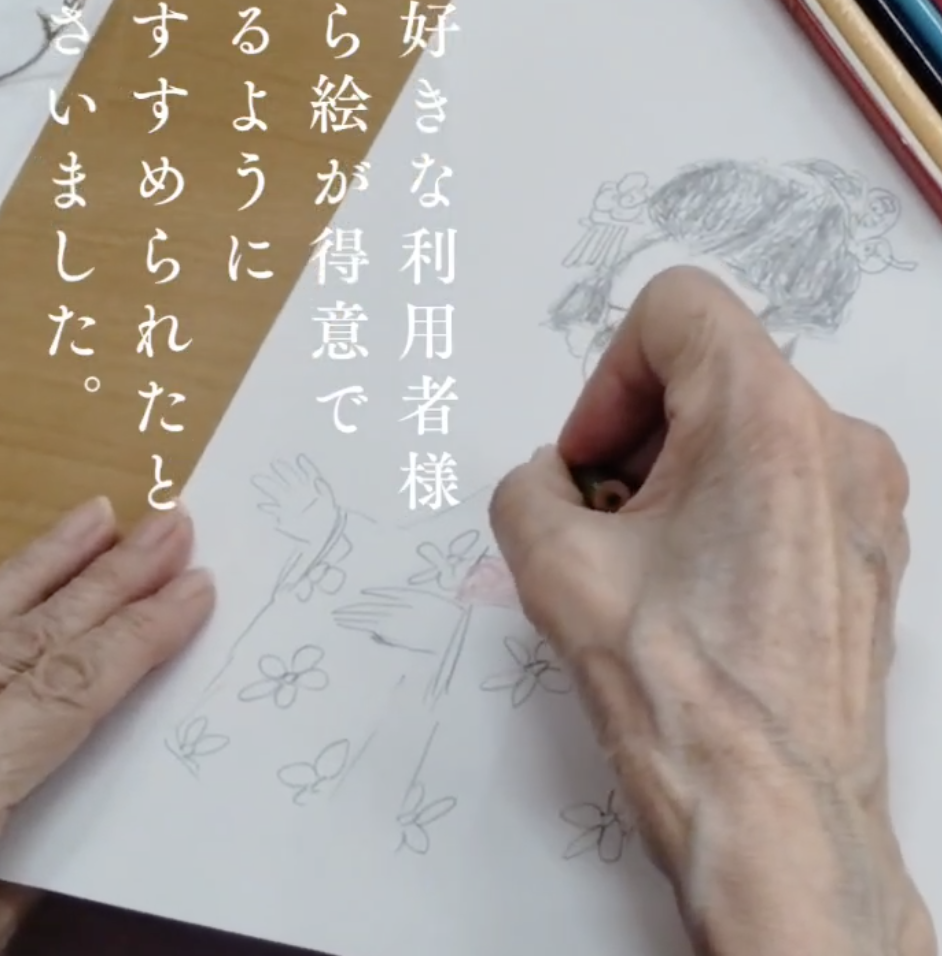 好きな利用者様
ら絵が得意で
るように
すすめられたと
さいました。